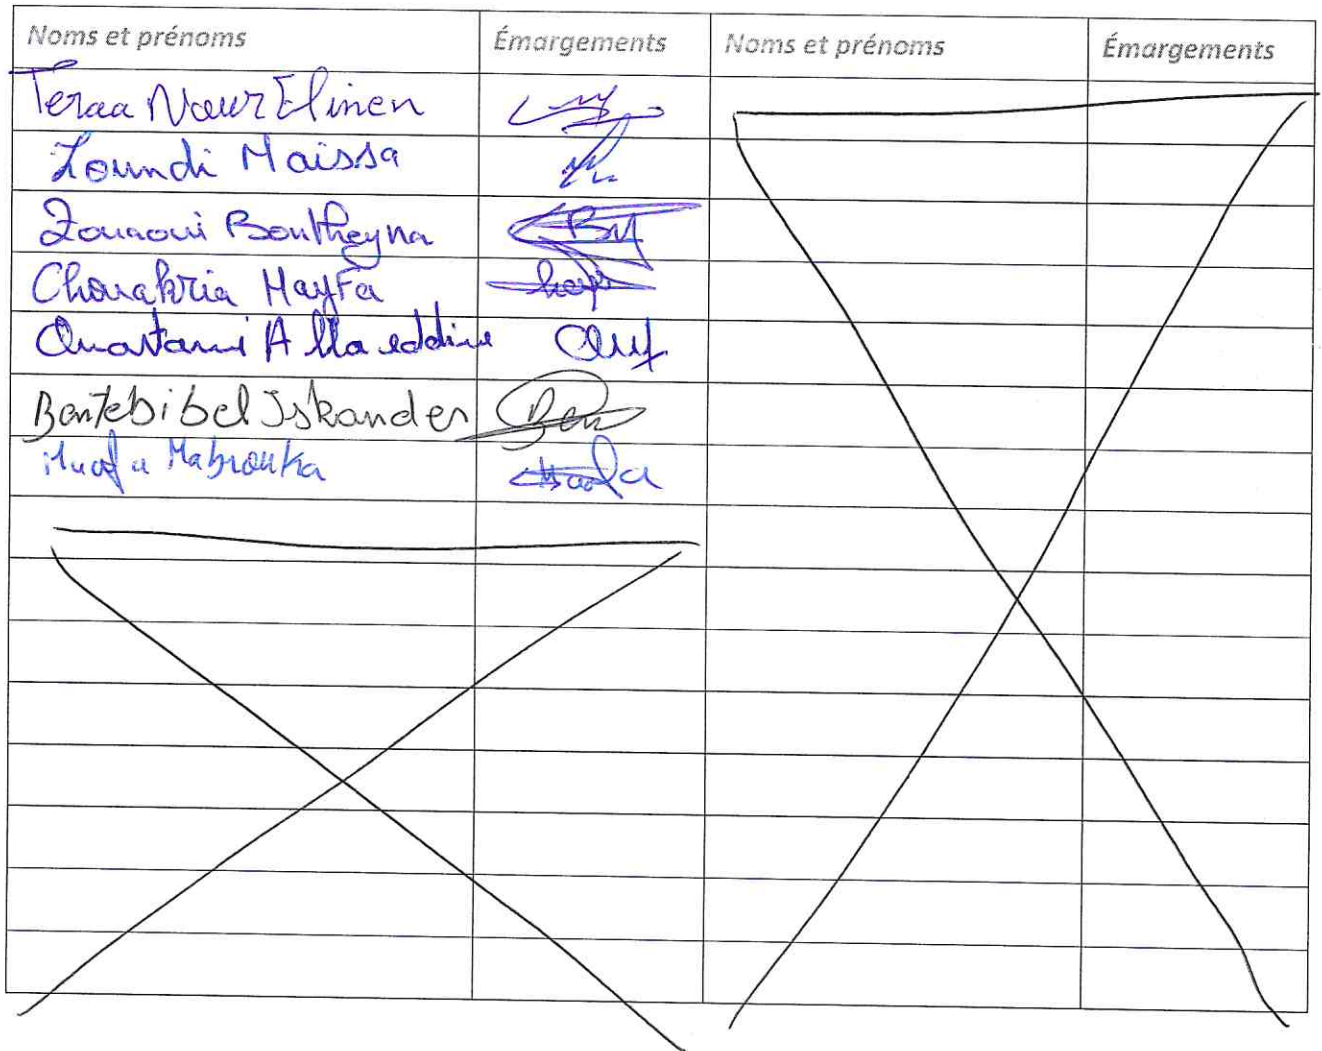 Noms et prénoms Émargements Noms et prénoms Émargements
Teraa Nour Elinen
Loundi Maissa
Zouaoui Boutheyna
Chouakria Hayfa
Ouartani Alla eddine
Bentebibel Iskander Ben
Mabrouka